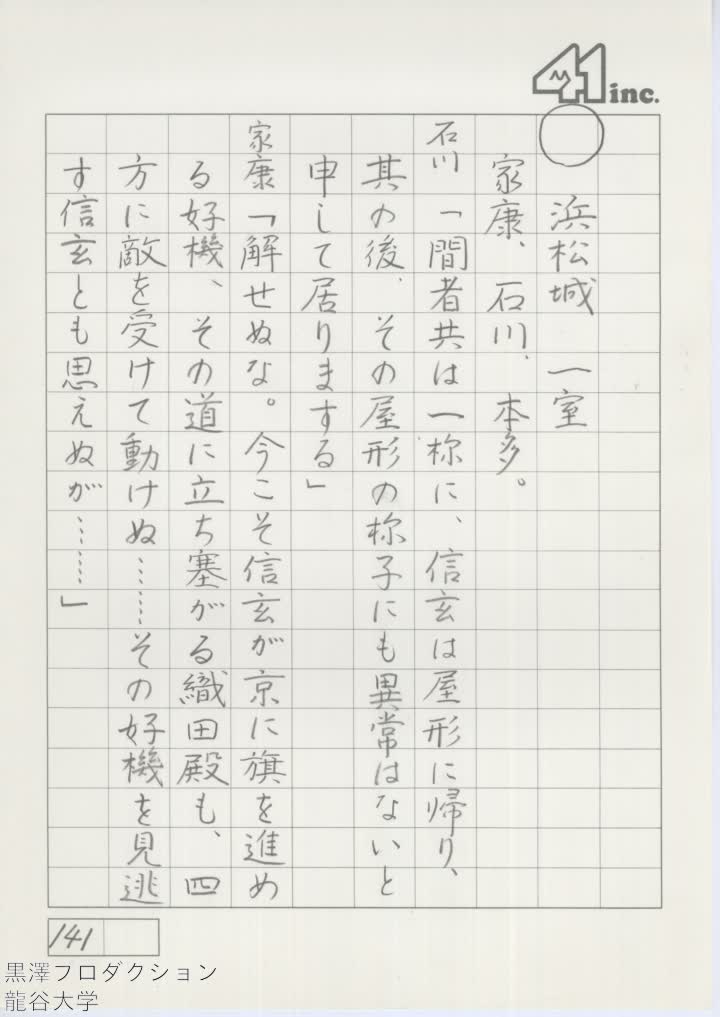 41 inc.
○　浜松城　一室
家康、石川、本多。
石川「間者共は一様に、信玄は屋形に帰り、
其の後、その屋形の様子にも異常はないと
申して居りまする」
家康「解せぬな。今こそ信玄が京に旗を進め
る好機、その道に立ち塞がる織田殿も、四
方に敵を受けて動けぬ……その好機を見逃
す信玄とも思えぬが……」
141
黒澤プロダクション
龍谷大学